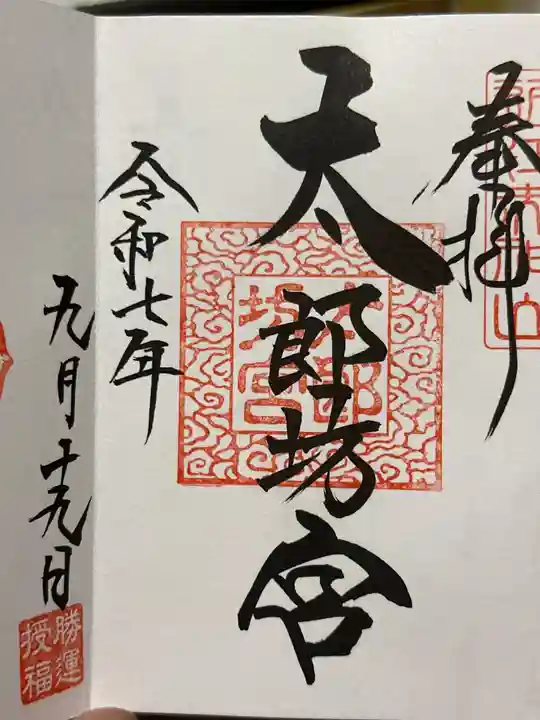 奉拝
太郎坊宮
太郎
坊宮
令和七年
九月十九日
勝運
授福